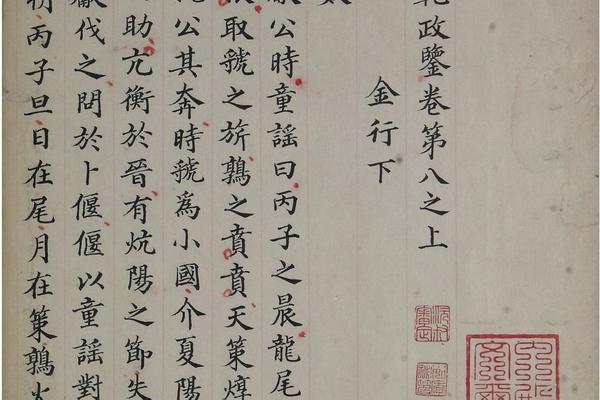 政鑒卷第八之上
金行下
公時童謠曰丙子之晨龍尾
取虢之旂鶉之賁賁天策焞
公其奔時虢爲小國介夏陽
助亢衡於晉有炕陽之節失
伐之問於卜偃偃以童謠對
丙子旦日在尾月在策鶉火